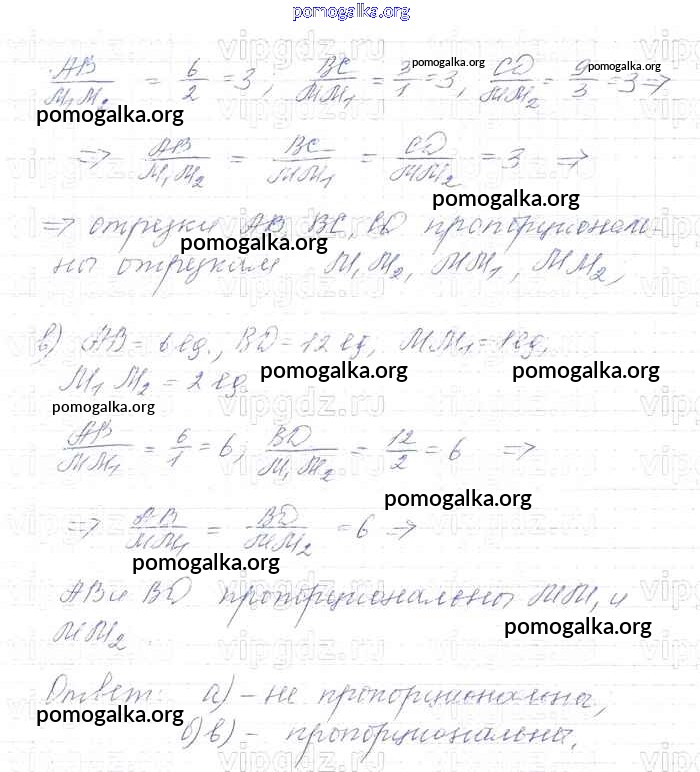 pomogalka.org
AB/M₁M₂ = 6/2 = 3; BC/MM₁ = 3/1 = 3, CD/MM₂ = 9/3 = 3 ⇒
pomogalka.org pomogalka.org
pomogalka.org
⇒ AB/M₁M₂ = BC/MM₁ = CD/MM₂ = 3 ⇒
pomogalka.org
⇒ отрезки AB, BC, CD пропорциональ-
pomogalka.org
ны отрезкам M₁M₂, MM₁, MM₂,
в) AB = 6 ед., BD = 12 ед, MM₁ = 1 ед,
pomogalka.org pomogalka.org
M₁M₂ = 2 ед
pomogalka.org
AB/MM₁ = 6/1 = 6, BD/M₁M₂ = 12/2 = 6 ⇒
pomogalka.org
⇒ AB/MM₁ = BD/MM₂ = 6 ⇒
pomogalka.org
AB и BD пропорциональны MM₁ и
MM₂
pomogalka.org
Ответ: а) – не пропорциональны,
pomogalka.org
б) в) – пропорциональны.